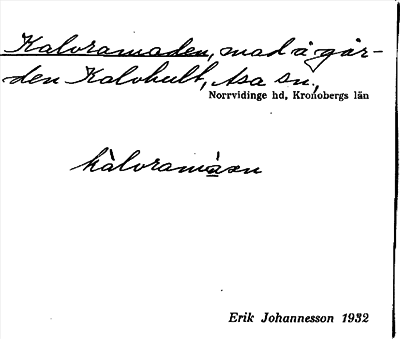 Kalvramaden, mad å går-
den Kalvhult, Asa sn.,
Norrvidinge hd, Kronobergs län
kàlvramàən
Erik Johannesson 1932